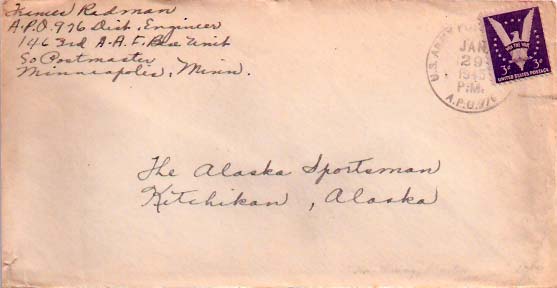 Radman
A.P.O. 976 Dist. Engineer
1463rd A.A.F. Base Unit
Minneapolis, Minn.
U.S. ARMY
JAN
29
1945
P.M.
A.P.O. 976
WIN THE WAR
3¢ 3¢
UNITED STATES POSTAGE
The Alaska Sportsman
Kitchikan, Alaska